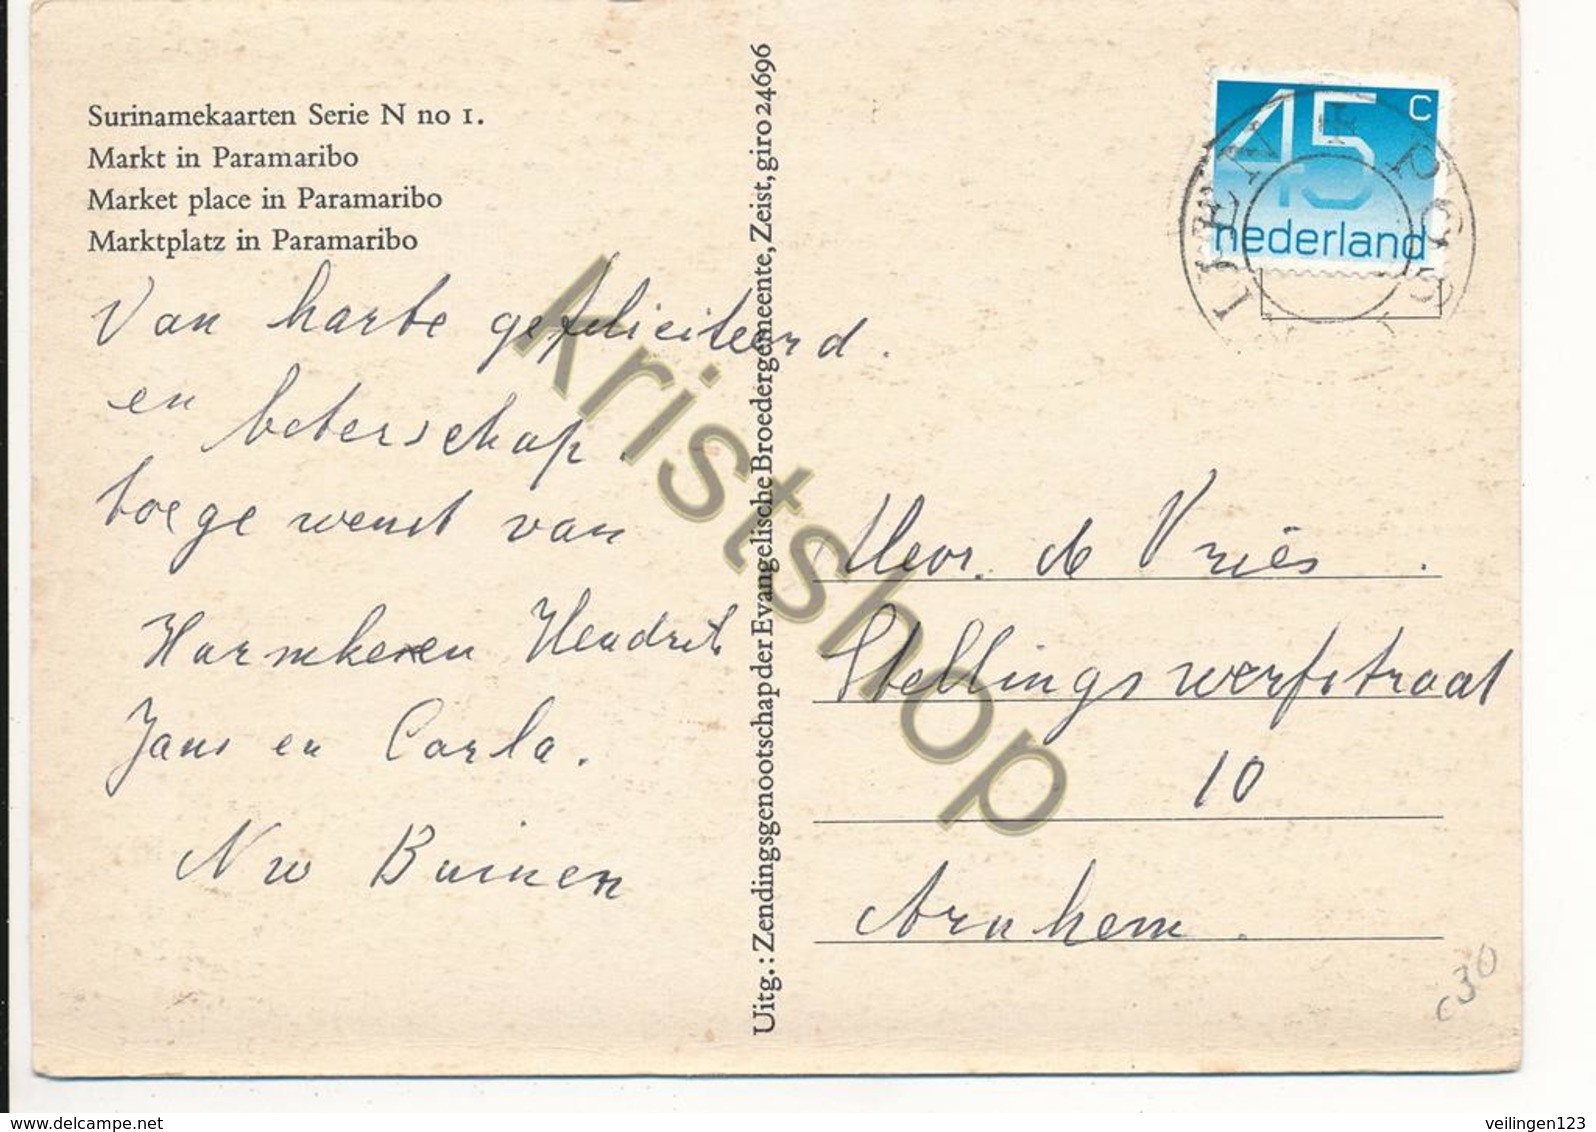 Surinamekaarten Serie N no 1.
Markt in Paramaribo
Market place in Paramaribo
Marktplatz in Paramaribo
Van harte gefeliciteerd.
en beterschap.
toege wenst van
Harmken en Hendrik
Jans en Carla.
Nw Buinen
Uitg.: Zendingsgenootschap der Evangelische Broedergemeente, Zeist, giro 24696
45 c
nederland
POS
Mevr. de Vries.
Stellingswerfstraat
10
Arnhem.
c30
Kristshop
www.delcampe.net
veilingen123